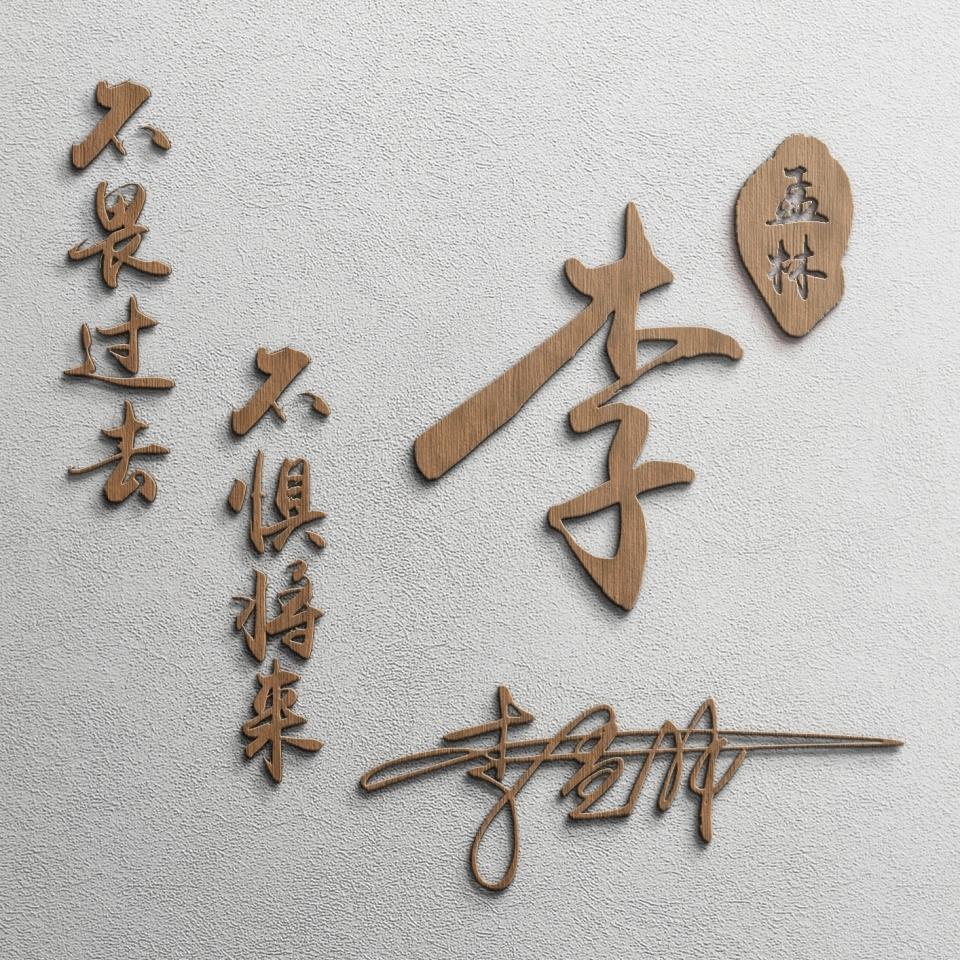 不畏过去
不惧将来
李
孟林
李孟林